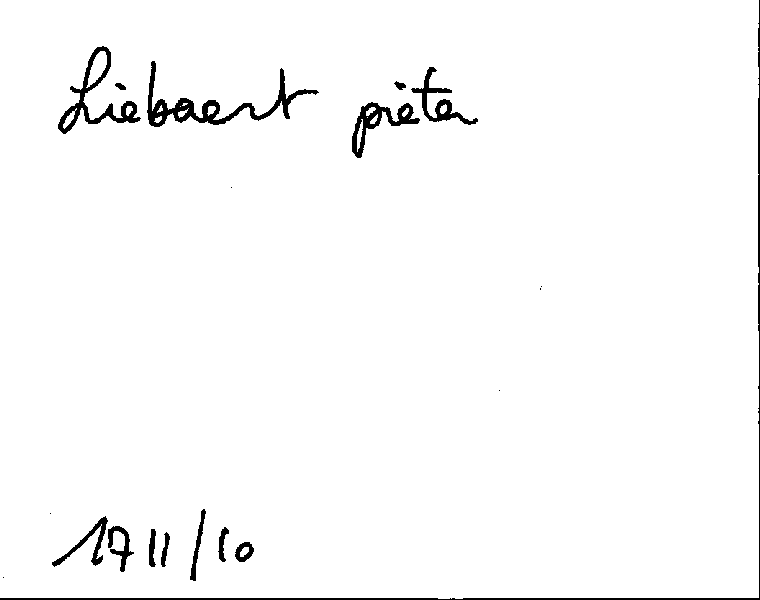 Liebaert pieter
1711/10